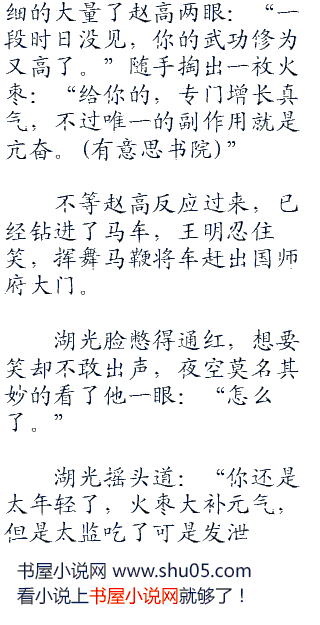 细的大量了赵高两眼：“一
段时日没见，你的武功修为
又高了。”随手掏出一枚火
枣：“给你的，专门增长真
气，不过唯一的副作用就是
亢奋。(有意思书院)”
不等赵高反应过来，已
经钻进了马车，王明忍住
笑，挥舞马鞭将车赶出国师
府大门。
湖光脸憋得通红，想要
笑却不敢出声，夜空莫名其
妙的看了他一眼：“怎么
了。”
湖光摇头道：“你还是
太年轻了，火枣大补元气，
但是太监吃了可是发泄
书屋小说网 www.shu05.com
看小说上书屋小说网就够了！